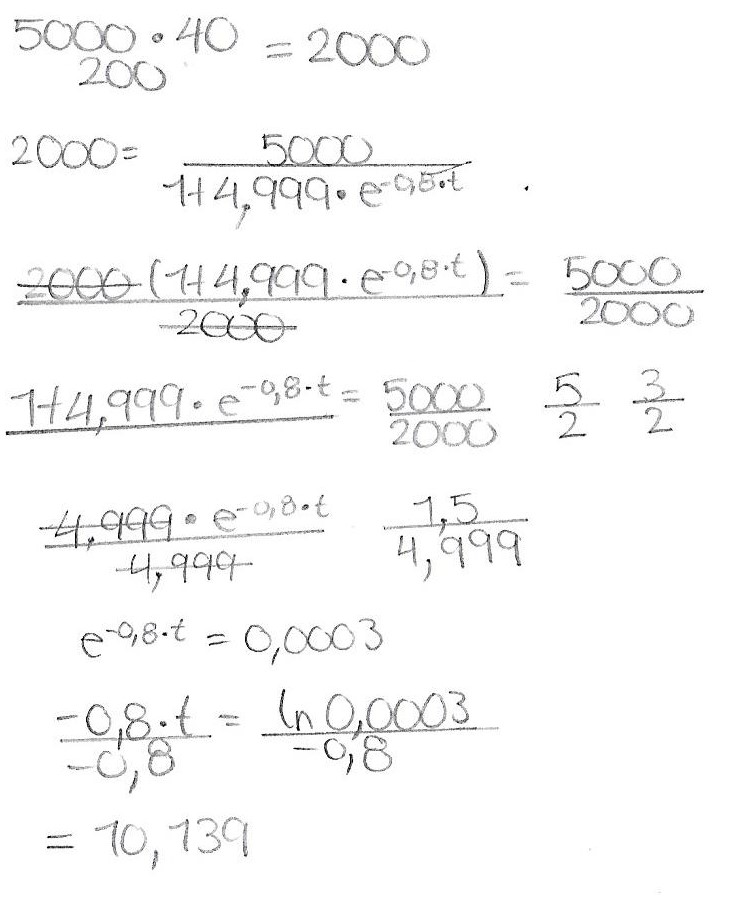 5000 • 40 / 200 = 2000
2000 = 5000 / 1+4,999 • e^-0,8•t .
2000 (1+4,999 • e^-0,8•t) / 2000 = 5000 / 2000
1+4,999 • e^-0,8•t = 5000 / 2000 5/2 3/2
4,999 • e^-0,8•t / 4,999 1,5 / 4,999
e^-0,8•t = 0,0003
-0,8•t / -0,8 = ln 0,0003 / -0,8
= 10,139